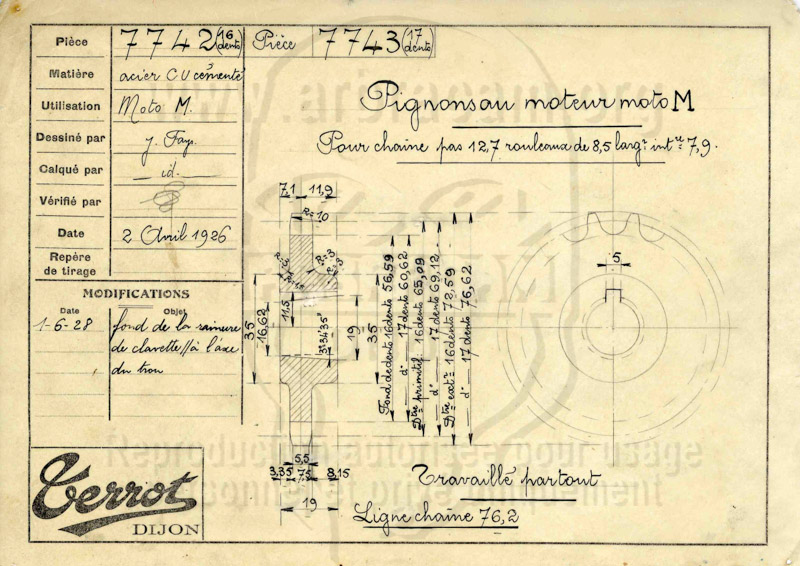 Pièce 7742 (16 dents) Pièce 7743 (17 dents)
Matière acier CU cémenté
Utilisation Moto M.
Dessiné par J. Fays.
Calqué par id.
Vérifié par
Date 2 Avril 1926
Repère
de tirage
MODIFICATIONS
Date Objet
1-6-28 fond de la rainure
de clavette // à l'axe
du trou
Terrot
DIJON
Pignons au moteur moto M
Pour chaîne pas 12,7 rouleaux de 8,5 largr intre 7,9.
7,1 11,9
R=10
R=3
11,5
35
16,62
19
35
3°34'35"
5,5
3,35 7,5 8,15
19
Fond de dents 16 dents 56,59
d° 17 dents 60,62
Dtre primitif 16 dents 65,09
d° 17 dents 69,12
Dtre extr 16 dents 72,59
d° 17 dents 76,62
5
Travaillé partout
Ligne chaîne 76,2
Reproduction autorisée pour usage
personnel et privé uniquement